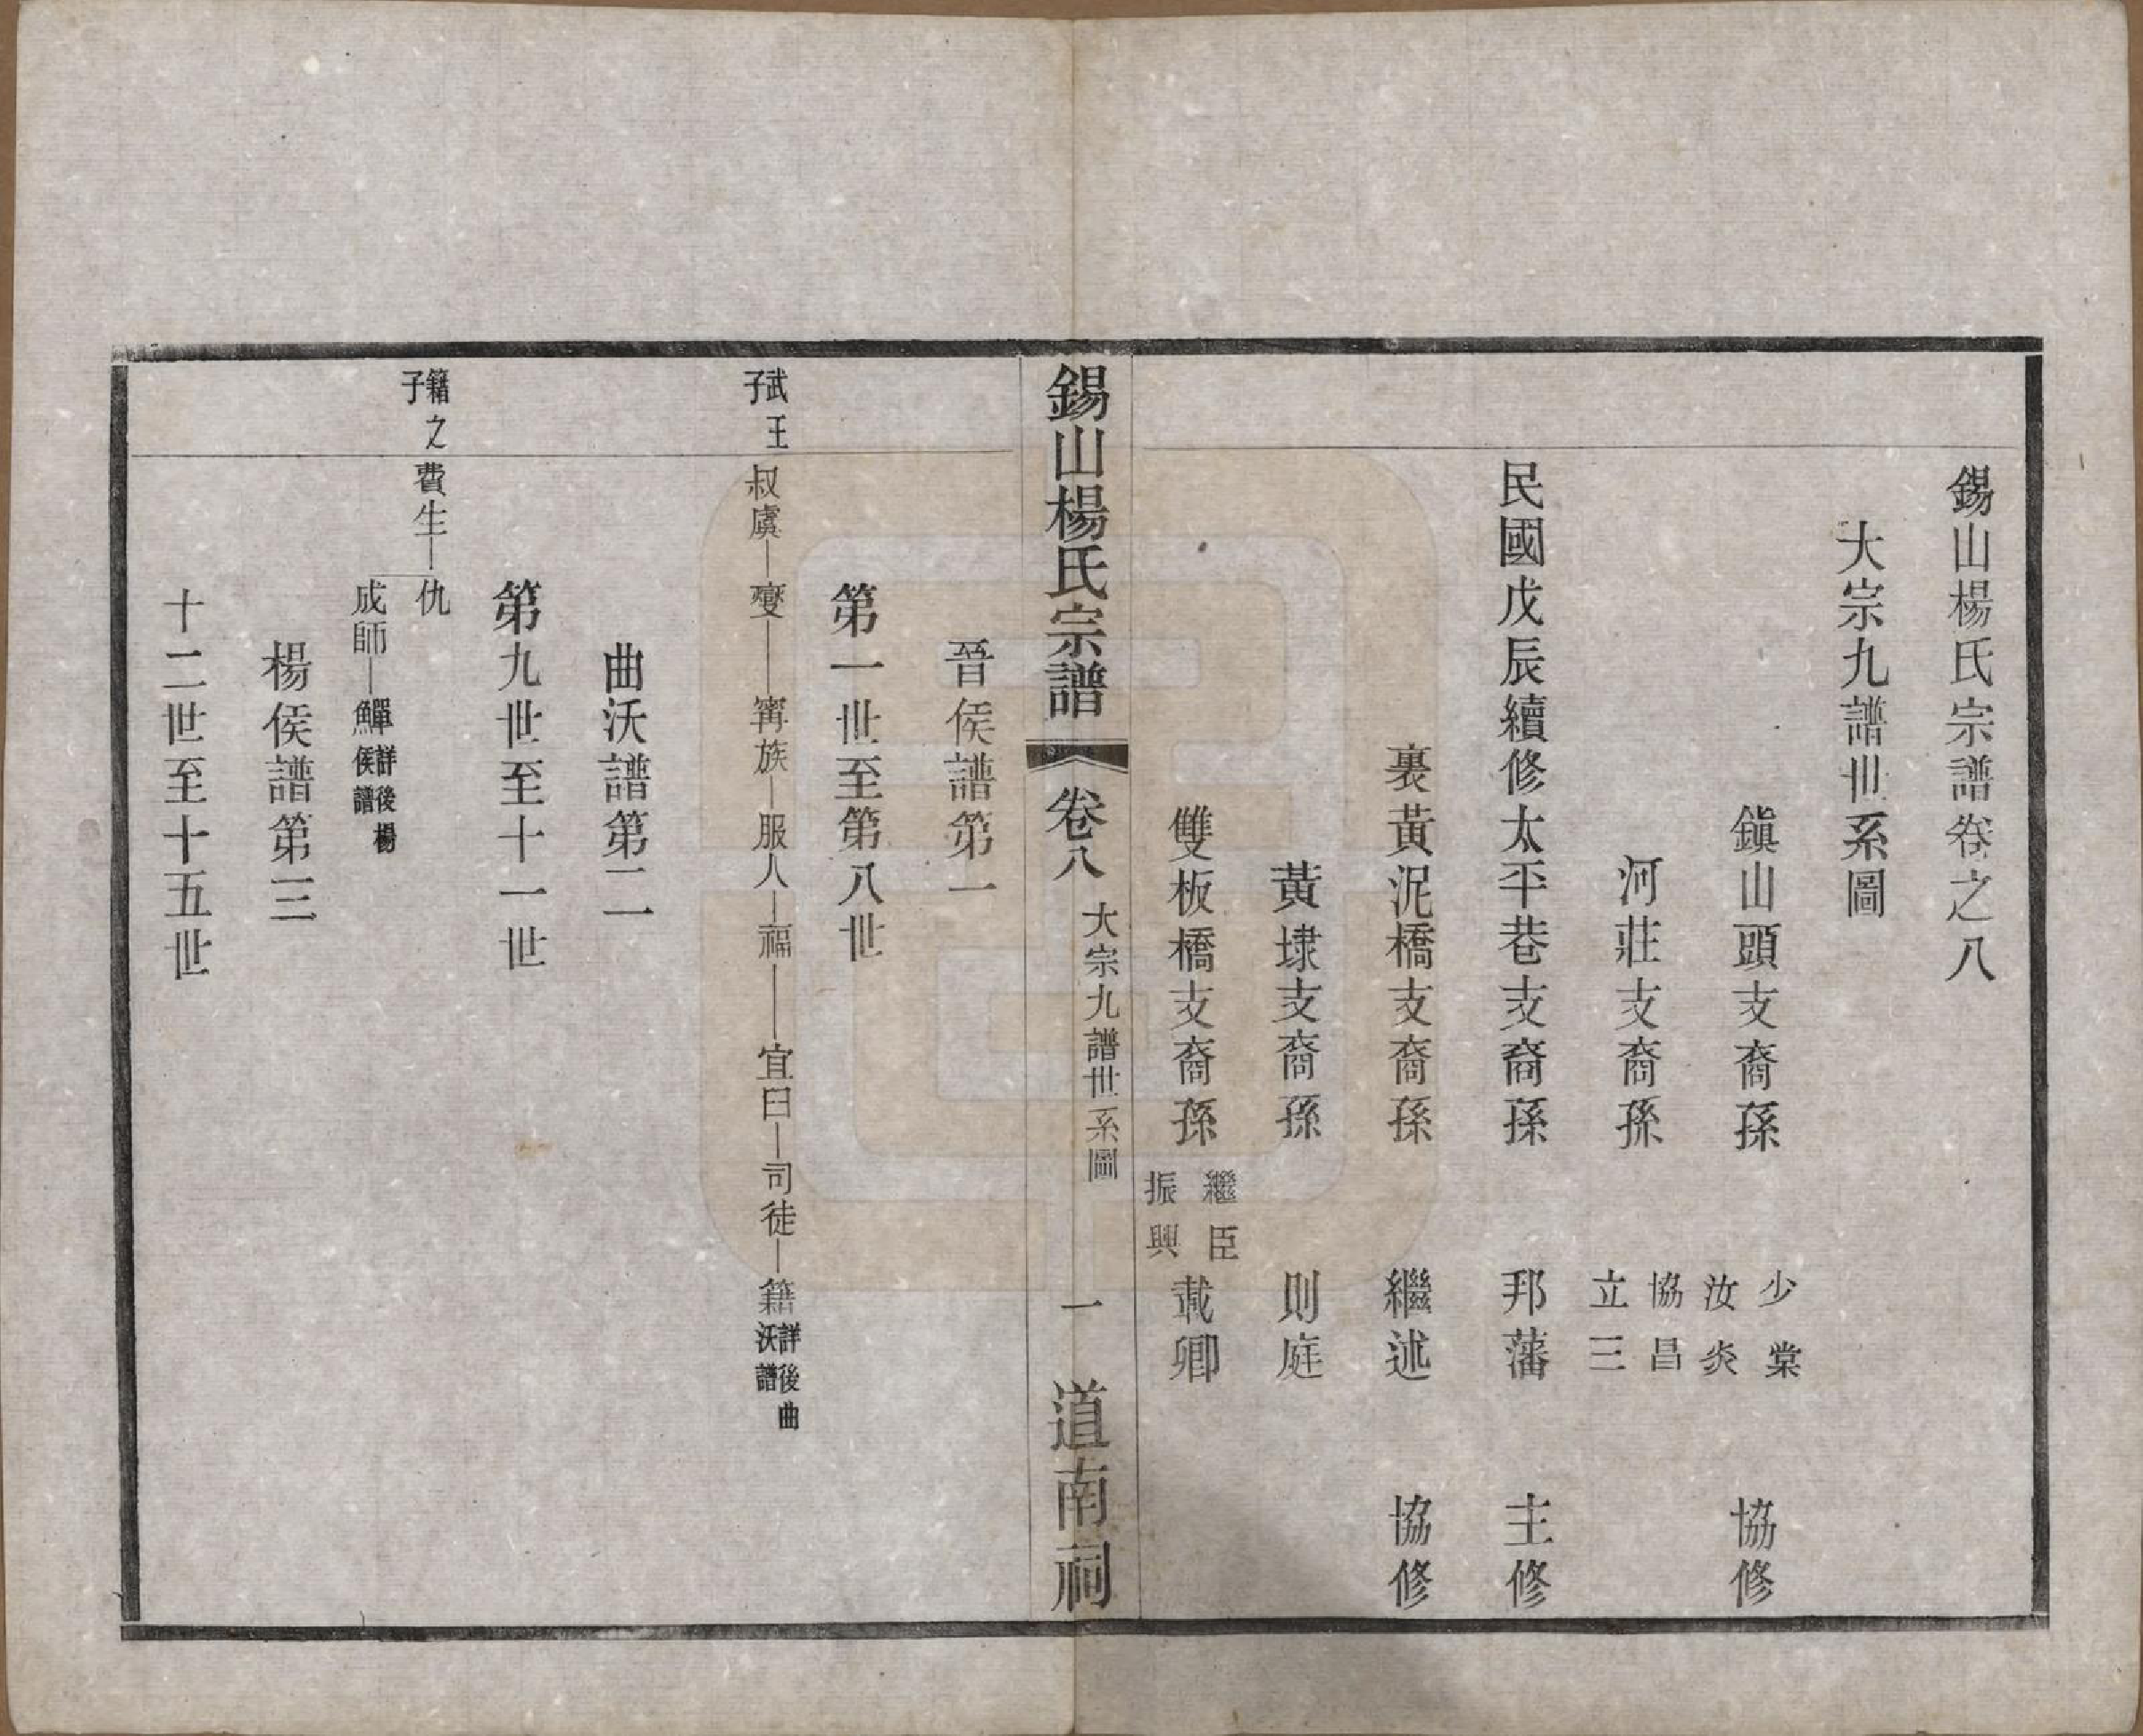 錫山楊氏宗譜卷之八
大宗九譜世系圖
鎭山頭支裔孫 少棠 汝炎 協修
河莊支裔孫 協昌 立三
民國戊辰續修太平巷支裔孫 邦藩 主修
裏黃泥橋支裔孫 繼述 協修
黃埭支裔孫 則庭
雙板橋支裔孫 繼臣 振興 載卿
錫山楊氏宗譜 卷八 大宗九譜世系圖 一 道南祠
晉侯譜第一
第一世至第八世
武王子 叔虞 燮 寗族 服人 福 宜臼 司徒 籍 詳後曲沃譜
曲沃譜第二
第九世至十一世
籍之子 費生 仇
成師 鱓 詳後楊侯譜
楊侯譜第三
十二世至十五世